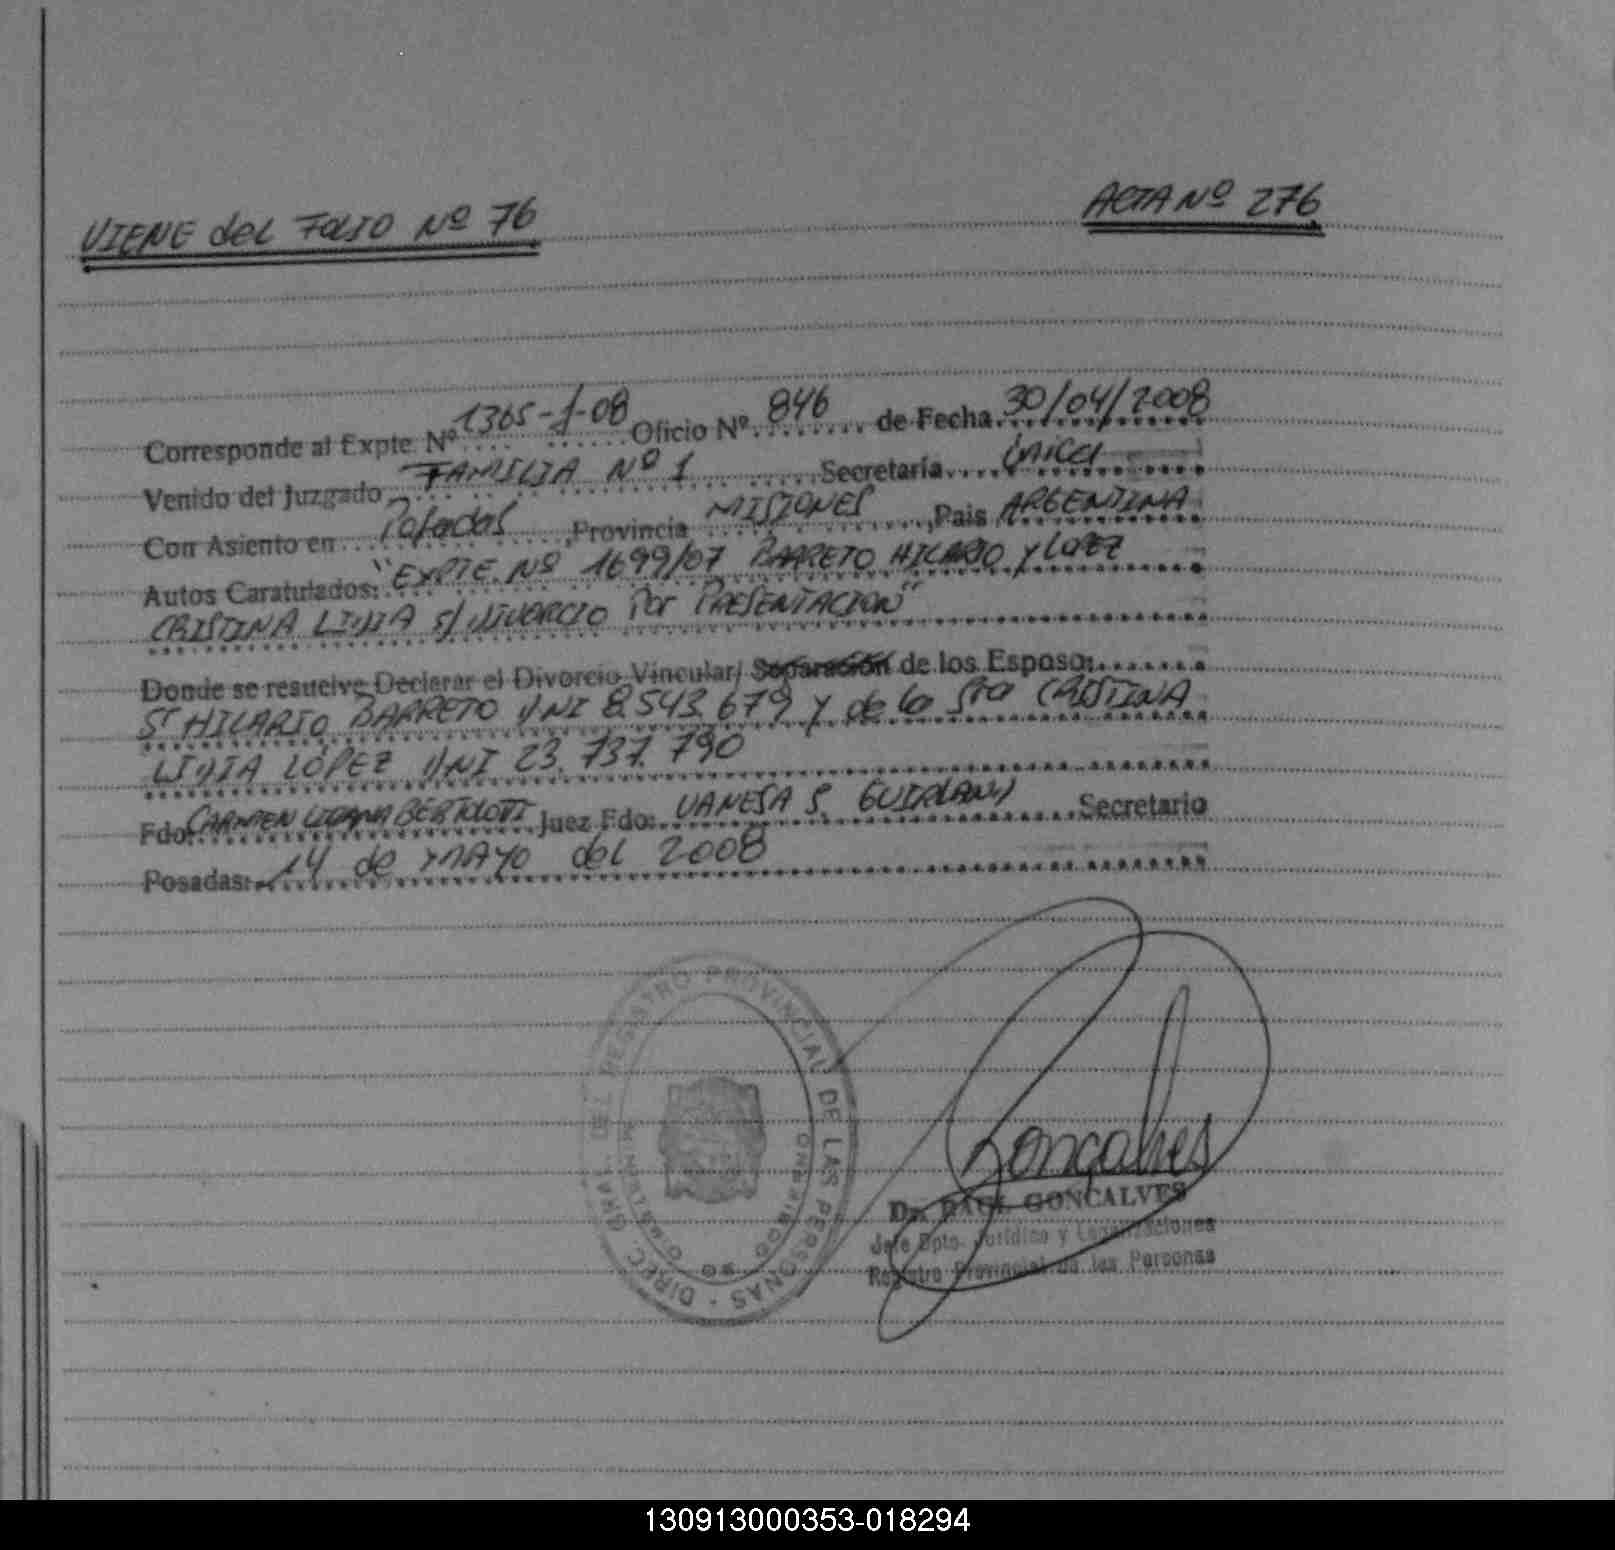 VIENE del FOLIO Nº 76
ACTA Nº 276
Corresponde al Expte. Nº 1365-J-08 Oficio Nº 846 de Fecha 30/04/2008
Venido del Juzgado FAMILIA Nº 1 Secretaría única
Con Asiento en Posadas, Provincia MISIONES, País ARGENTINA
Autos Caratulados: "EXPTE. Nº 1699/07 BARRETO HILARIO y LOPEZ
CRISTINA LIDIA s/ DIVORCIO Por PRESENTACION"
Donde se resuelve Declarar el Divorcio Vincular/ Separación de los Esposo:
Sr HILARIO BARRETO DNI 8.543.679 y de la Sra CRISTINA
LIDIA LÓPEZ DNI 23.737.790
Fdo: CARMEN BERTOLOTTI Juez Fdo: VANESA S. Secretario
Posadas: 14 de MAYO del 2008
DIREC. GRAL. DEL REGISTRO PROVINCIAL DE LAS PERSONAS
Goncalves
Dr. RAUL GONCALVES
Jefe Dpto. Jurídico y Legalizaciones
Registro Provincial de las Personas
130913000353-018294